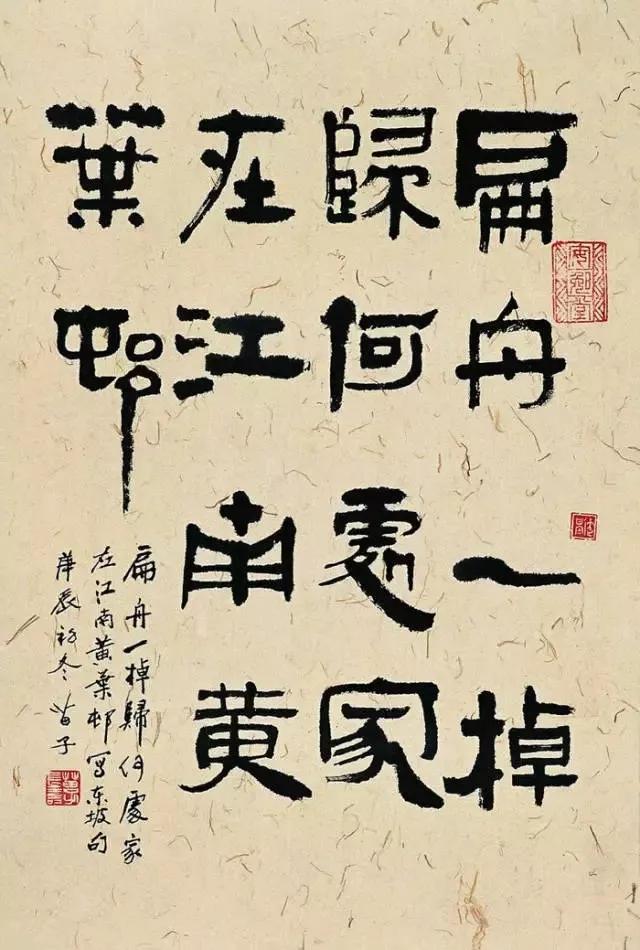 扁舟一棹
歸何處家
在江南黄
葉邨
扁舟一棹歸何處家
在江南黄葉邨写东坡句
庚辰初冬苗子